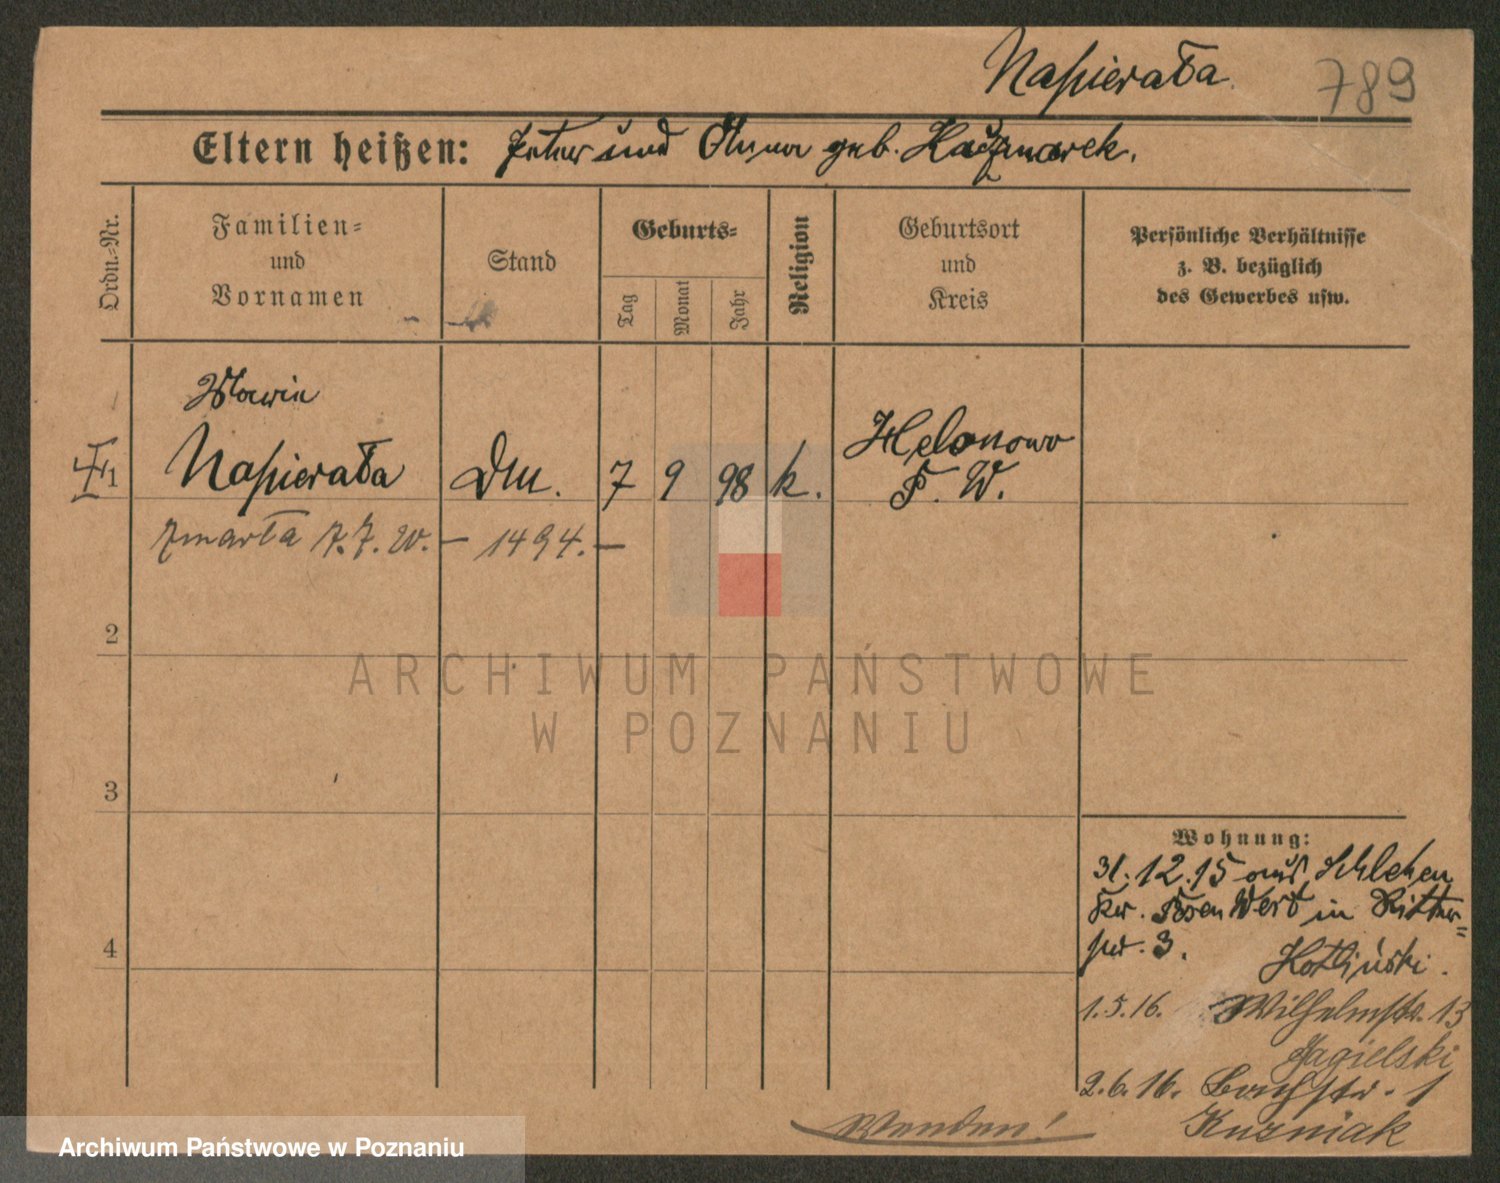 Napierała
789
Eltern heißen: Peter und Anna geb. Kaczmarek.
Ordn.-Nr.
Familien-
und
Vornamen
Stand
Geburts-
Tag
Monat
Jahr
Religion
Geburtsort
und
Kreis
Persönliche Verhältnisse
z. B. bezüglich
des Gewerbes usw.
Maria
1
Napierała
7
9
98
k.
Helonowo
zmarła 7.7.20. — 1494. —
2
ARCHIWUM PAŃSTWOWE
W POZNANIU
3
Wohnung:
31.12.15 aus Schlehen
Kr. Posen West in Ritter=
str. 3.
4
1.5.16. Wilhelmstr. 13
Jagielski
2.6.16. Bachstr. 1
Wenden!
Kuzniak
Archiwum Państwowe w Poznaniu